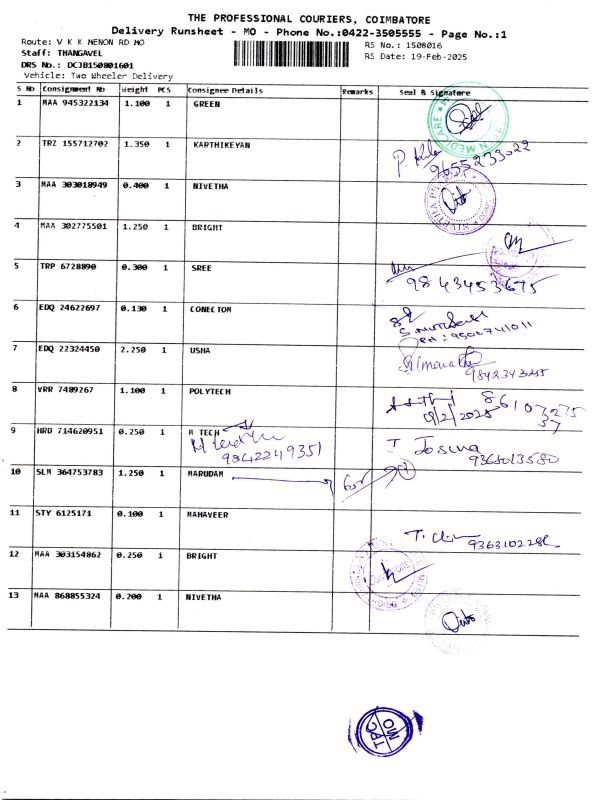 THE PROFESSIONAL COURIERS, COIMBATORE
Delivery Runsheet - MO - Phone No.:0422-3505555 - Page No.:1
Route: V K K MENON RD MO
RS No.: 1508016
Staff: THANGAVEL
RS Date: 19-Feb-2025
DRS No.: DCJB150801601
Vehicle: Two Wheeler Delivery
S No Consignment No Weight PCS Consignee Details Remarks Seal & Signature
1 MAA 945322134 1.100 1 GREEN
2 TRZ 155712702 1.350 1 KARTHIKEYAN
9655233022
3 MAA 303018949 0.400 1 NIVETHA
4 MAA 302775501 1.250 1 BRIGHT
5 TRP 6728890 0.300 1 SREE
9843453675
6 EDQ 24622697 0.130 1 CONECTOM
7 EDQ 22324450 2.250 1 USHA
8 VRR 7489267 1.100 1 POLYTECH
9 HRD 714620951 0.250 1 M TECH
9842249351
T Josuna
9366013580
10 SLM 364753783 1.250 1 MARUDAM
for
11 STY 6125171 0.100 1 MAHAVEER
12 MAA 303154862 0.250 1 BRIGHT
13 MAA 868855324 0.200 1 NIVETHA
TPC
MO